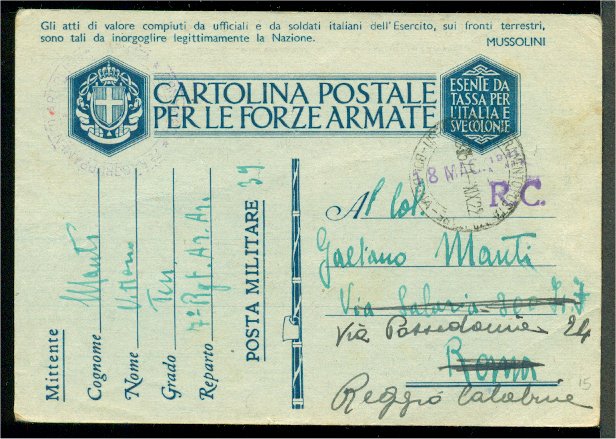 Gli atti di valore compiuti da ufficiali e da soldati italiani dell'Esercito, sui fronti terrestri,
sono tali da inorgoglire legittimamente la Nazione.
MUSSOLINI
CARTOLINA POSTALE
PER LE FORZE ARMATE
ESENTE DA
TASSA PER
L'ITALIA E
SVE COLONIE
18 MAG
R.C.
Mittente
Cognome Manti
Nome
Grado Ten.
Reparto 7° Rgt. Ar. Ar.
POSTA MILITARE 39
Al Col.
Gaetano Manti
Via Salaria 300
Via Possidonea 24
Roma
Reggio Calabria
15